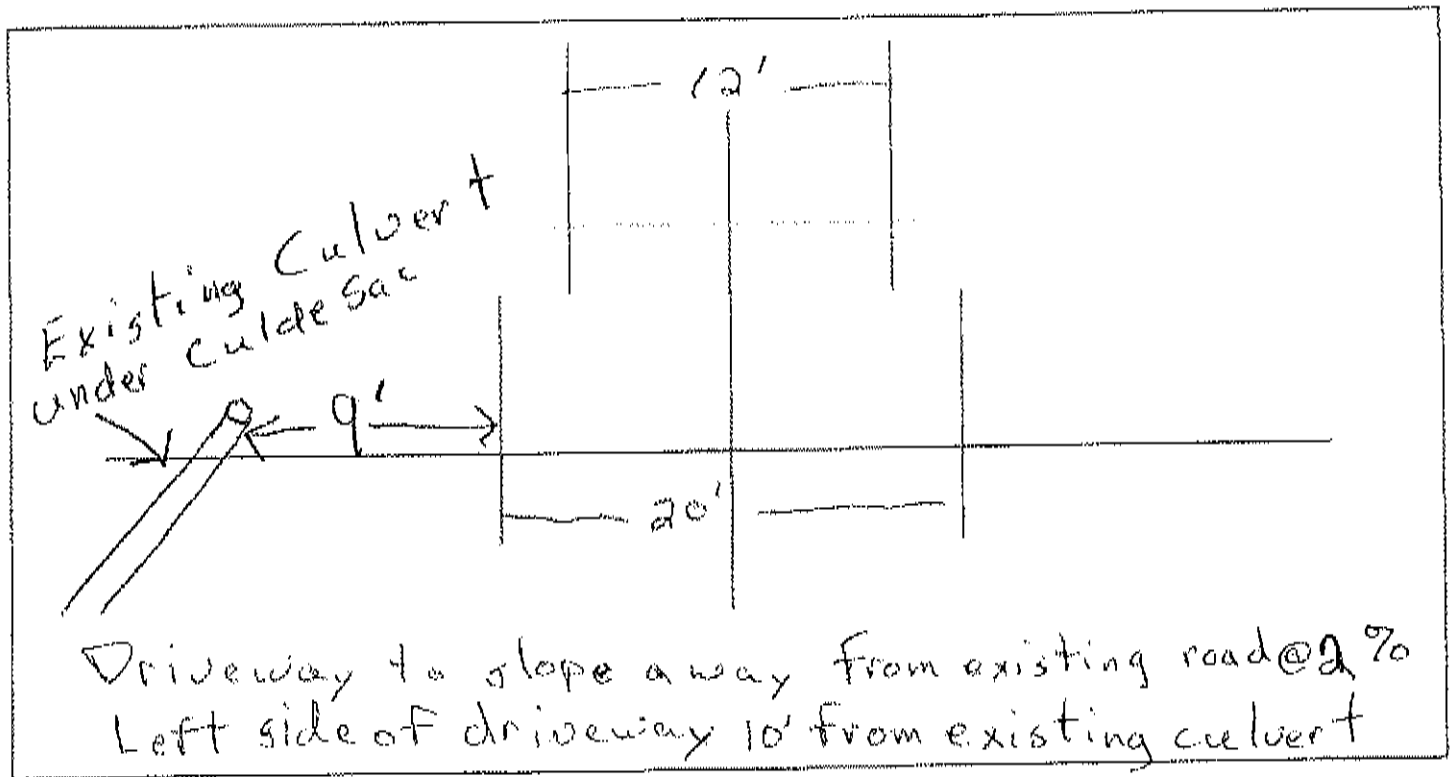 12'
Existing Culvert
under Culde Sac
9'
20'
Driveway to slope away from existing road @ 2%
Left side of driveway 10' from existing culvert